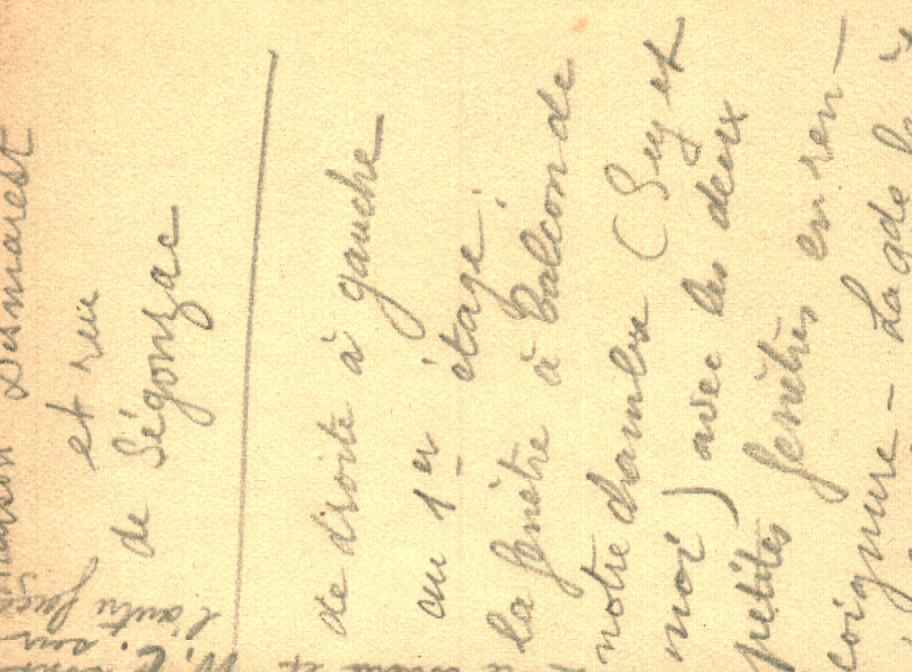 maison Desmarest
et rue
de Ségonzac
de droite à gauche
au 1er étage :
la fenêtre à balcon de
notre chambre (Guy et
moi) avec les deux
petites fenêtres en ren-
coignure - La gde
W. C. sur
l'autre